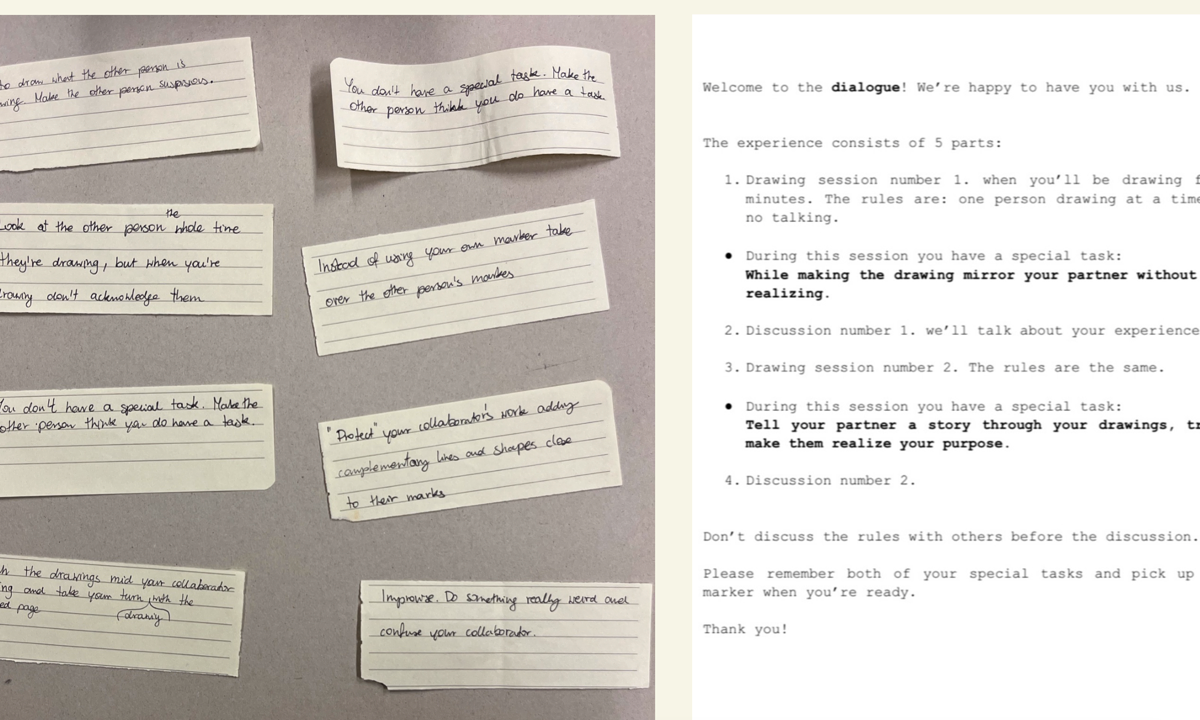 to draw what the other person is
Make the other person suspicious.
You don't have a special task. Make the
other person think you do have a task
Look at the other person the whole time
they're drawing, but when you're
drawing don't acknowledge them
Instead of using your own marker take
over the other person's markes
You don't have a special task. Make the
other person think you do have a task.
"Protect" your collaborator's work adding
complementary lines and shapes close
to their marks
the drawings mid your collaborador
and take your turn with the
page (drawing)
Improvise. Do something really weird and
confuse your collaborador.
Welcome to the dialogue! We're happy to have you with us.
The experience consists of 5 parts:
1. Drawing session number 1. when you'll be drawing
minutes. The rules are: one person drawing at a time
no talking.
• During this session you have a special task:
While making the drawing mirror your partner without
realizing.
2. Discussion number 1. we'll talk about your experience
3. Drawing session number 2. The rules are the same.
• During this session you have a special task:
Tell your partner a story through your drawings,
make them realize your purpose.
4. Discussion number 2.
Don't discuss the rules with others before the discussion.
Please remember both of your special tasks and pick up
marker when you're ready.
Thank you!